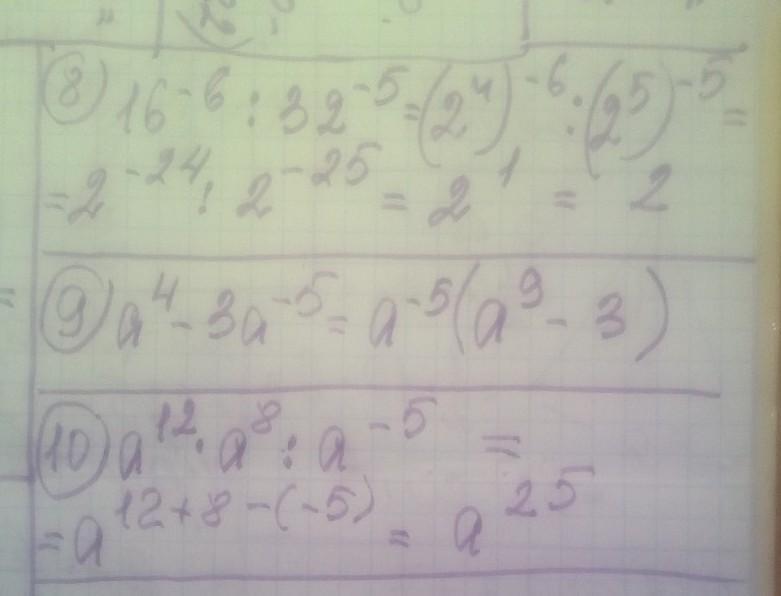 ⑧ 16⁻⁶ : 32⁻⁵ = (2⁴)⁻⁶ : (2⁵)⁻⁵ =
= 2⁻²⁴ : 2⁻²⁵ = 2¹ = 2
⑨ a⁴ - 3a⁻⁵ = a⁻⁵(a⁹ - 3)
⑩ a¹² · a⁸ : a⁻⁵ =
= a¹²⁺⁸⁻⁽⁻⁵⁾ = a²⁵